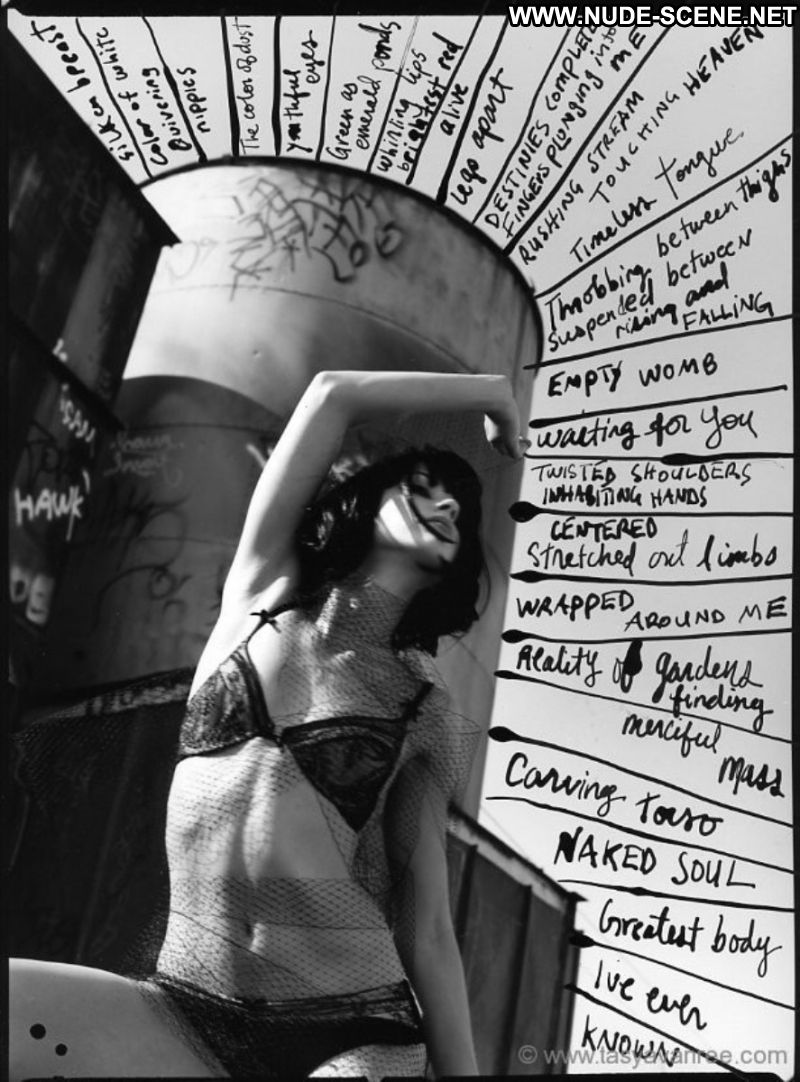 WWW.NUDE-SCENE.NET
silken breast
Color of white
Quivering
nipples
The color of dust
youthful
eyes
Green as
emerald ponds
whirling lips
brightest red
alive
legs apart
DESTINIES COMPLETED
FINGERS PLUNGING into ME
RUSHING STREAM
TOUCHING HEAVEN
Timeless tongue
Throbbing between thighs
suspended between
rising and
FALLING
EMPTY WOMB
waiting for you
TWISTED SHOULDERS
INHABITING HANDS
CENTERED
Stretched out limbs
WRAPPED AROUND ME
Reality of gardens
finding
merciful
mass
Carving torso
NAKED SOUL
Greatest body
I've ever
KNOWN
HAWK
© www.tasyavanree.com